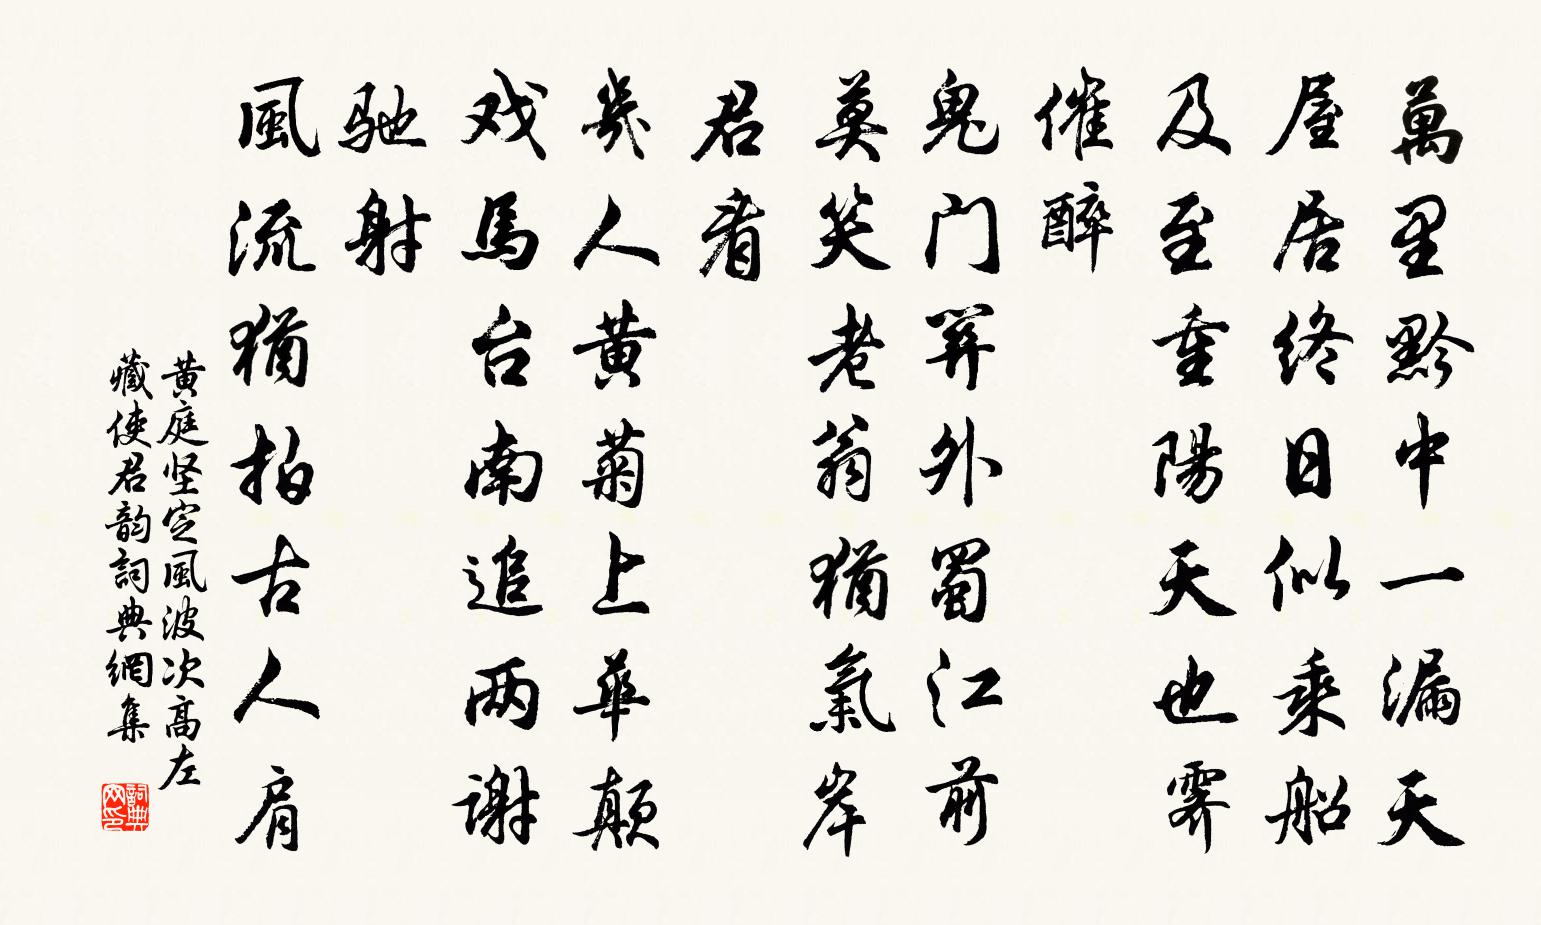 萬里黔中一漏天
屋居終日似乘船
及至重陽天也霽
催醉
鬼门關外蜀江前
莫笑老翁猶氣岸
君看
幾人黄菊上華颠
戏馬台南追两谢
驰射
風流猶拍古人肩
黄庭坚定風波次高左
藏使君韵詞典網集
詞典网印